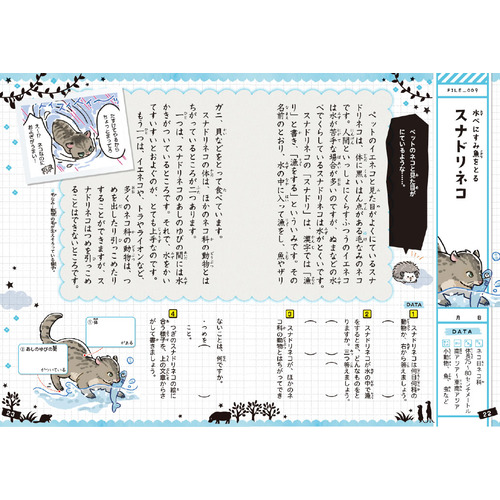 FILE_009
水べにすみ魚をとる
スナドリネコ
月　日
DATA
ネコ目ネコ科
体長75~80センチメートル
南アジア~東南アジア
小動物、魚、虫など
22
ペットのネコと見た目が
にているような……。
ペットのイエネコと見た目がよくにているスナ
ドリネコは、体に黒いはん点がある毛なみのネコ
です。人間といっしょにくらすふつうのイエネコ
は水が苦手な場合が多いのですが、ぬまなどの水
べでくらしているスナドリネコは水がとくいです。
スナドリネコの「スナドリ」は、漢字では「漁
り」と書き、「漁をする」といういみです。その
名前のとおり、水の中に入って漁をし、魚やザリ
ガニ、貝などをとって食べています。
スナドリネコの体は、ほかのネコ科の動物とは
ちがっているところが二つあります。
一つは、スナドリネコのあしのゆびの間には水
かきがついているところです。それで、水をかい
てすいすいおよぐのが、とても上手なのです。
もう一つは、イエネコや、トラ、ライオンなど、
多くのネコ科の動物は、つ
めを出したり引っこめたり
することができますが、ス
ナドリネコはつめを引っこめ
ることはできないところです。
DATA
1
スナドリネコは何目何科の
動物か、右から答えましょう。
2
スナドリネコが水の中で漁
をするとき、どんなものをと
りますか。三つ答えましょう。
3
スナドリネコが、ほかのネ
コ科の動物とはちがってでき
ないことは、何ですか。
・つめを
こと
4
つぎのスナドリネコの絵に
合う様子を、上の文章からさ
がして書きましょう。
がある
②あしのゆびの間
がついている
23